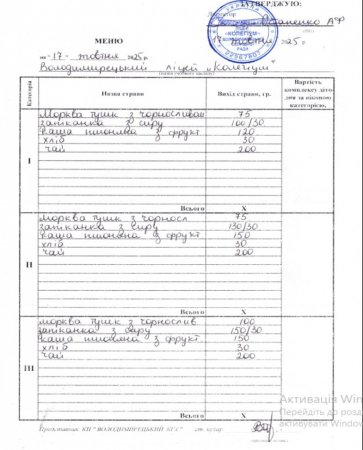 ЗАТВЕРДЖУЮ:
Остапенко А
17 жовтня 2025 р
МЕНЮ
на «17» жовтня 2025р.
Володимирецький ліцей „Колегіум"
Категорія
Назва страви
Вихід страви, гр.
Вартість комплексу цього дня за віковою категорією,
I
Морква туш з чорносливом 75
запіканка з сиру 100/30
каша пшоняна з фрукт 120
хліб 30
чай 200
Всього X
II
Морква туш з чорносл 75
запіканка з сиру 130/30
каша пшоняна з фрукт 150
хліб 30
чай 200
Всього X
III
Морква туш з чорнослив 100
запіканка з сиру 150/30
каша пшоняна з фрукт 150
хліб 30
чай 200
Всього X
Представник КП " ВОЛОДИМИРЕЦЬКИЙ
Активація Win
Перейдіть до розд
активувати Window